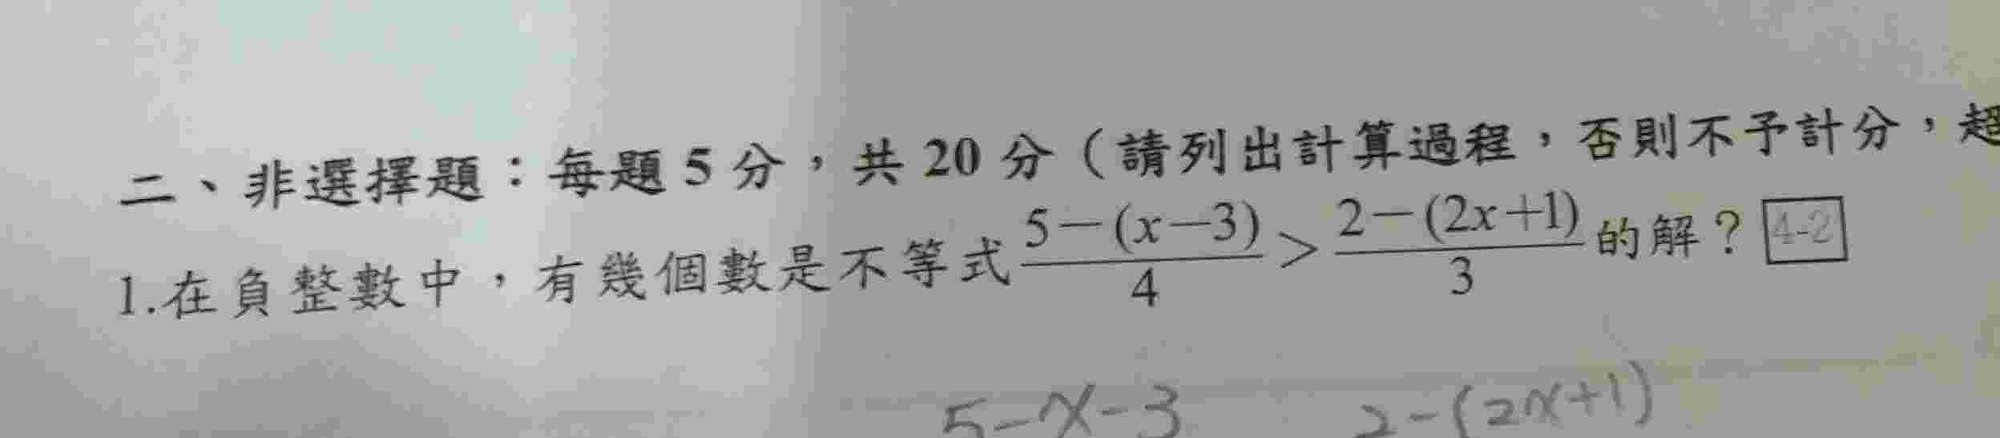 二、非選擇題：每題 5 分，共 20 分（請列出計算過程，否則不予計分，超
1.在負整數中，有幾個數是不等式 \frac{5-(x-3)}{4} > \frac{2-(2x+1)}{3} 的解？ 4-2
5-x-3 2-(2x+1)